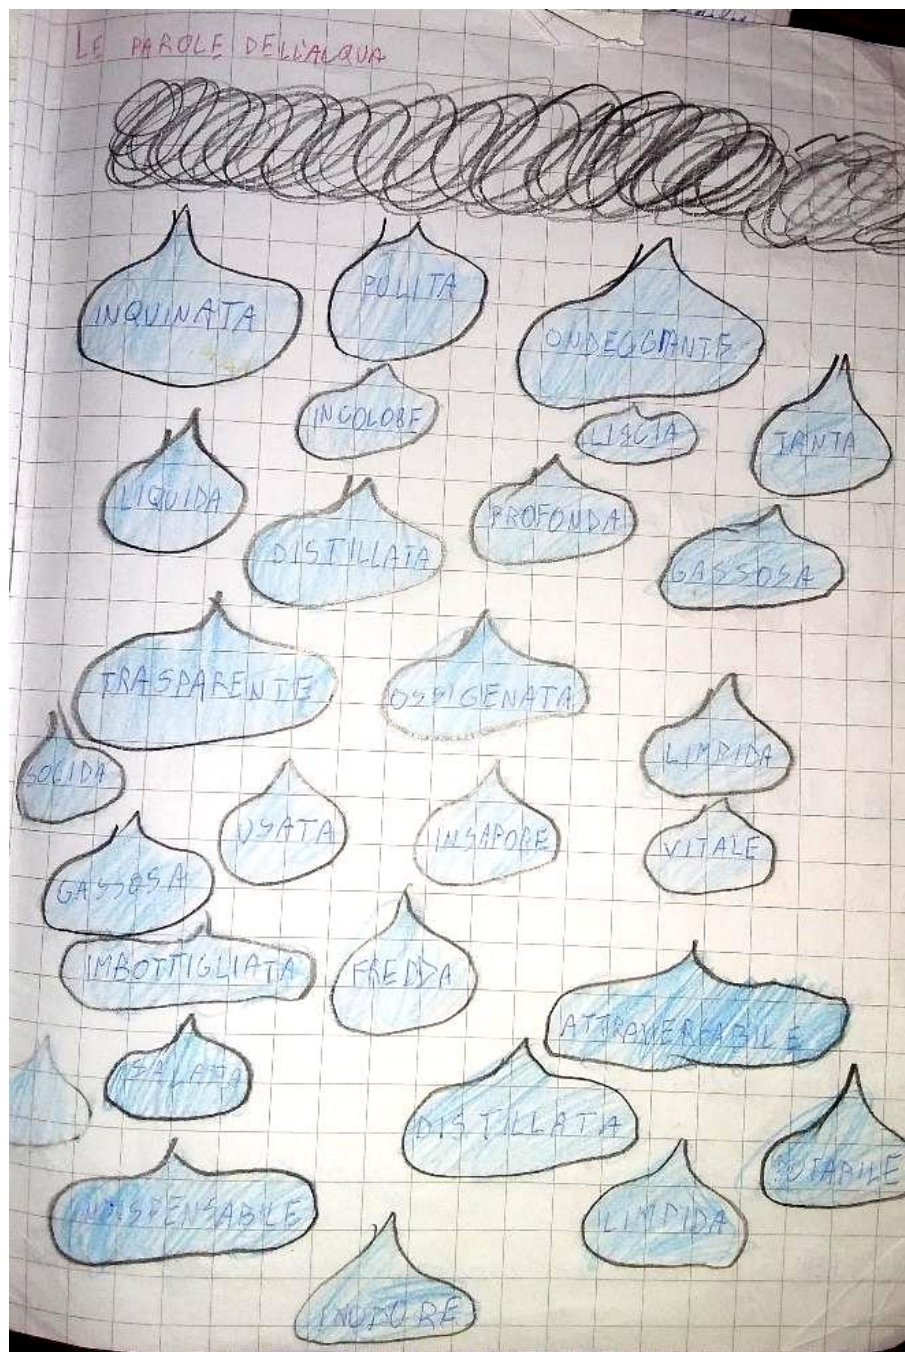 LE PAROLE DELL'ACQUA
INQUINATA
PULITA
ONDEGGIANTE
INCOLORE
LISCIA
TANTA
LIQUIDA
PROFONDA
DISTILLATA
GASSOSA
TRASPARENTE
OSSIGENATA
LIMPIDA
SOLIDA
USATA
INSAPORE
VITALE
GASSOSA
IMBOTTIGLIATA
FREDDA
ATTRAVERSABILE
SALATA
DISTILLATA
POTABILE
INDISPENSABILE
LIMPIDA
INODORE